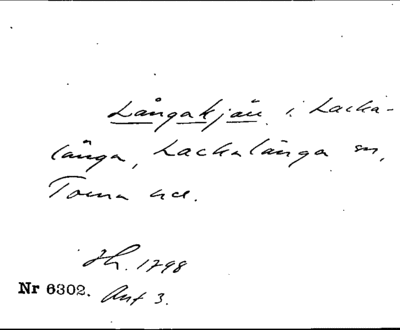 Långakjäu i Lacka-
länga, Lackalänga sn,
Torna hd.
Jh. 1798
Nr 6302. Akt 3.